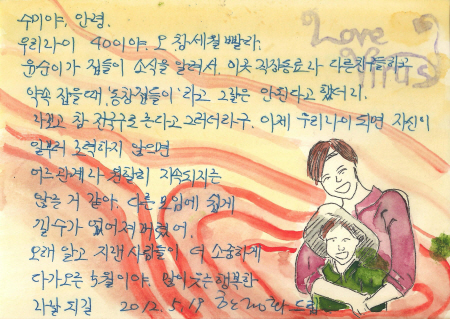 수미야, 안녕.
우리나이 40이야. 오 참 세월 빨라.
윤순이가 집들이 소식을 알려서, 이웃 직장동료나 다른친구들하고
약속 잡을때, '동창집들이'라고 그날은 안된다고 했더니.
나보고 참 전국구로 논다고 그러더라구. 이제 우리나이 되면 자신이
일부러 노력하지 않으면
어느관계나 원활히 지속되지는
않을 거 같아. 다른 모임에 쉽게
낄수가 없어져 버렸어.
오래 알고 지낸 사람들이 더 소중하게
다가오는 5월이야. 많이 웃는 행복한
나날 되길 2012. 5. 19 드림
Love
Virus